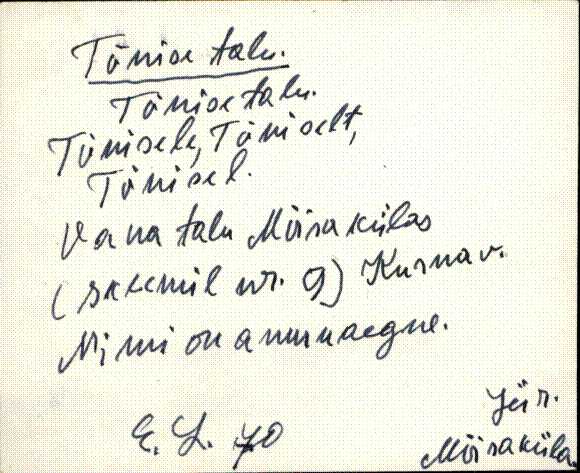 Tõnise talu.
Tõnise talu.
Tõnisele, Tõniselt,
Tõnisel.
Vana talu Mõisakülas
(skeemil nr. 9) Kurna v.
Nimi on ammuaegne.
E. L. 70
Jür.
Mõisaküla